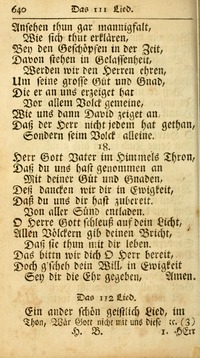 640 Das 111 Lied.
Ansehen thun gar mannigfalt,
Wie sich thut erklären,
Bey den Geschöpfen in der Zeit,
Davon stehen in Gelassenheit,
Werden wir den Herren ehren,
Um seine grosse Güt und Gnad,
Die er an uns erzeiget hat
Vor allem Volck gemeine,
Wie uns dann David zeiget an.
Daß der Herr nicht jedem hat gethan,
Sondern seim Volck alleine.
18.
Herr Gott Vater im Himmels Thron,
Daß du uns hast genommen an
Mit deiner Güt und Gnaden.
Deß dancken wir dir in Ewigkeit,
Daß du uns dir hast zubereit.
Von aller Sünd entladen.
O Herre Gott schleuß auf dein Licht,
Allen Völckern gib deinen Bricht,
Daß sie thun mit dir leben.
Das bittn wir dich O Herr bereit,
Doch g'scheh dein Will, in Ewigkeit
Sey dir die Ehr gegeben, Amen.
Das 112 Lied.
Ein ander schön geistlich Lied, im
Thon, Wär Gott nicht mit uns diese ꝛc. (3)
H. B. 1. HErr